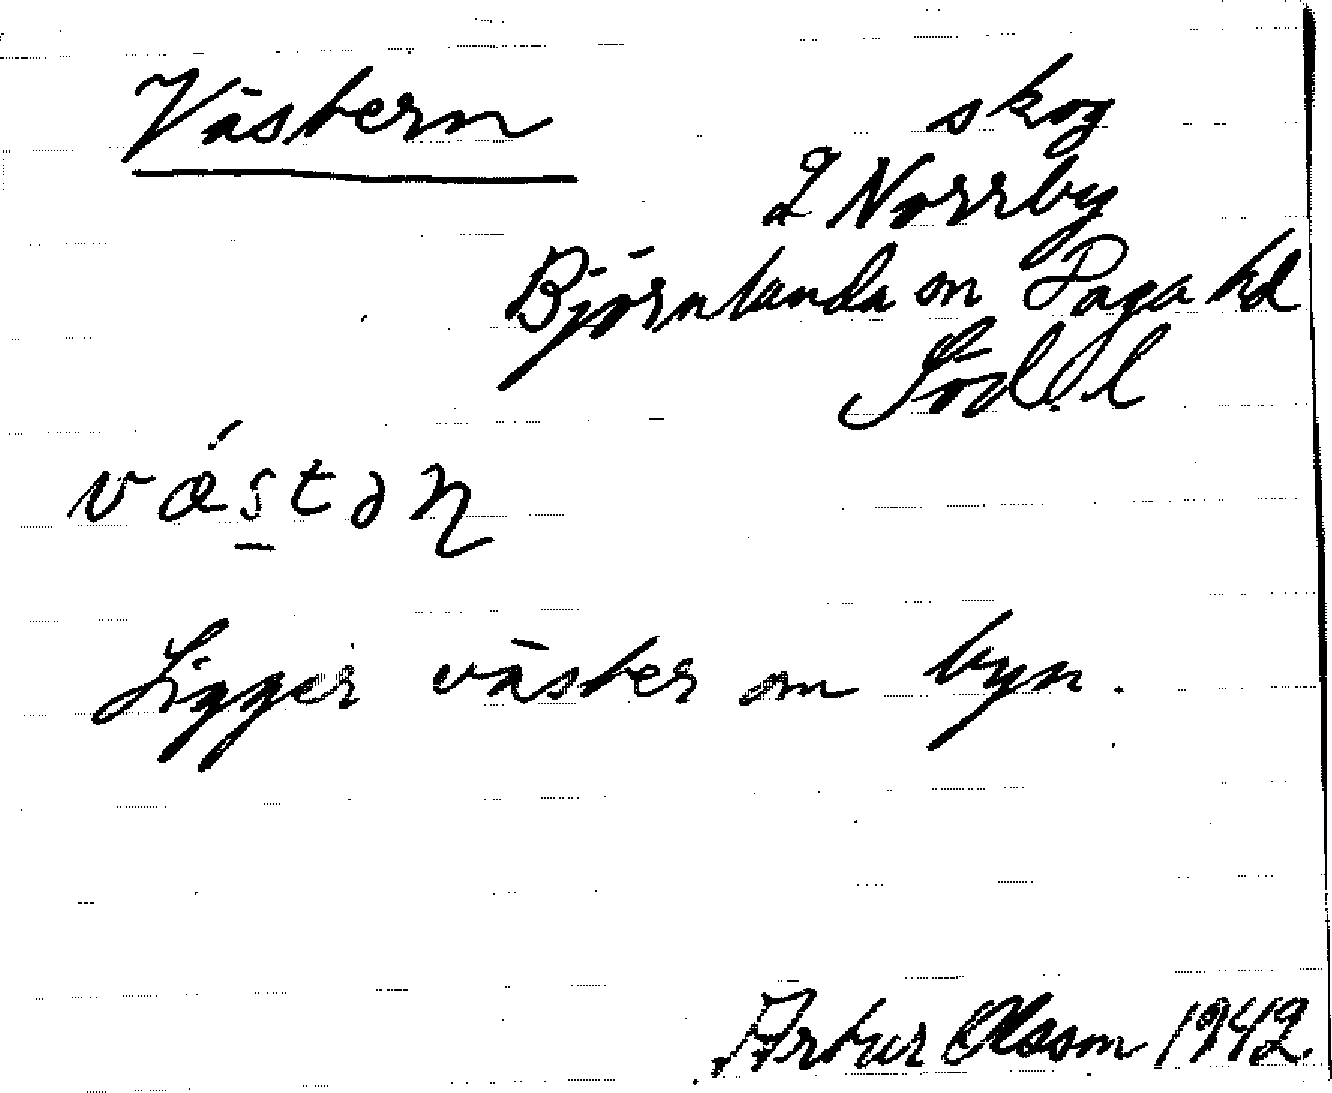 Västern
skog
2 Norrby
Björnlunda sn Daga hd
Söd. l
västəɳ
Ligger väster om byn.
Artur Olsson 1942.